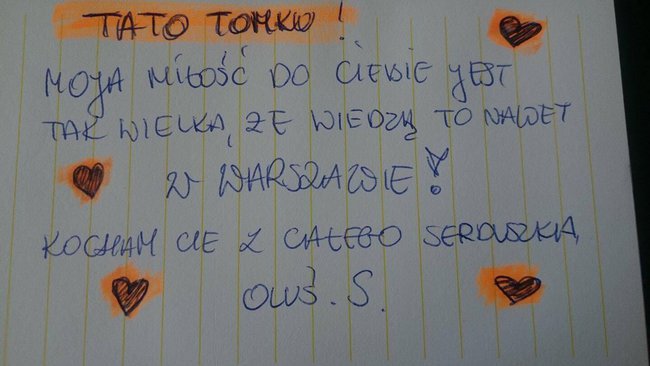 TATO TOMKU!
MOJA MIŁOŚĆ DO CIEBIE JEST
TAK WIELKA, ŻE WIEDZĄ TO NAWET
W WARSZAWIE!
KOCHAM CIE Z CAŁEGO SERDUSZKA,
OLUŚ. S.